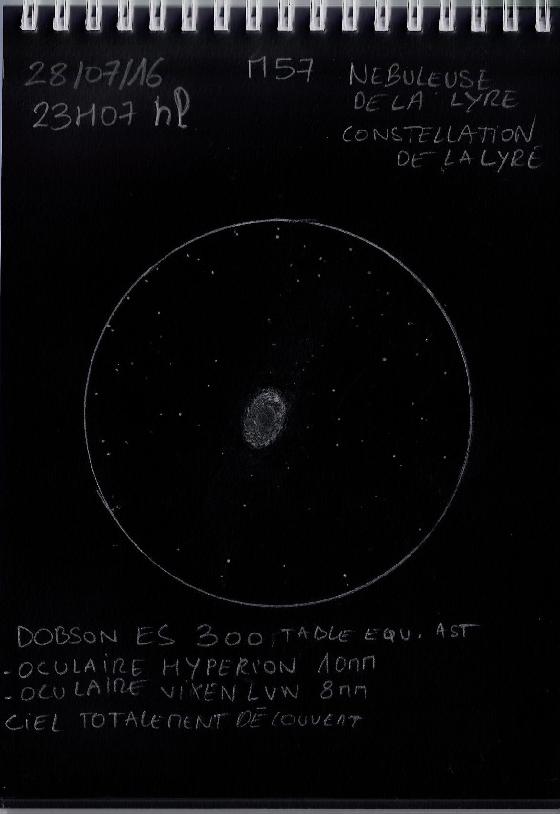 28/07/16
23H07 hl
M57
NEBULEUSE
DE LA LYRE
CONSTELLATION
DE LA LYRE
DOBSON ES 300 TABLE EQU. AST
- OCULAIRE HYPERION 10mm
- OCULAIRE VIXEN LVW 8mm
CIEL TOTALEMENT DÉCOUVERT